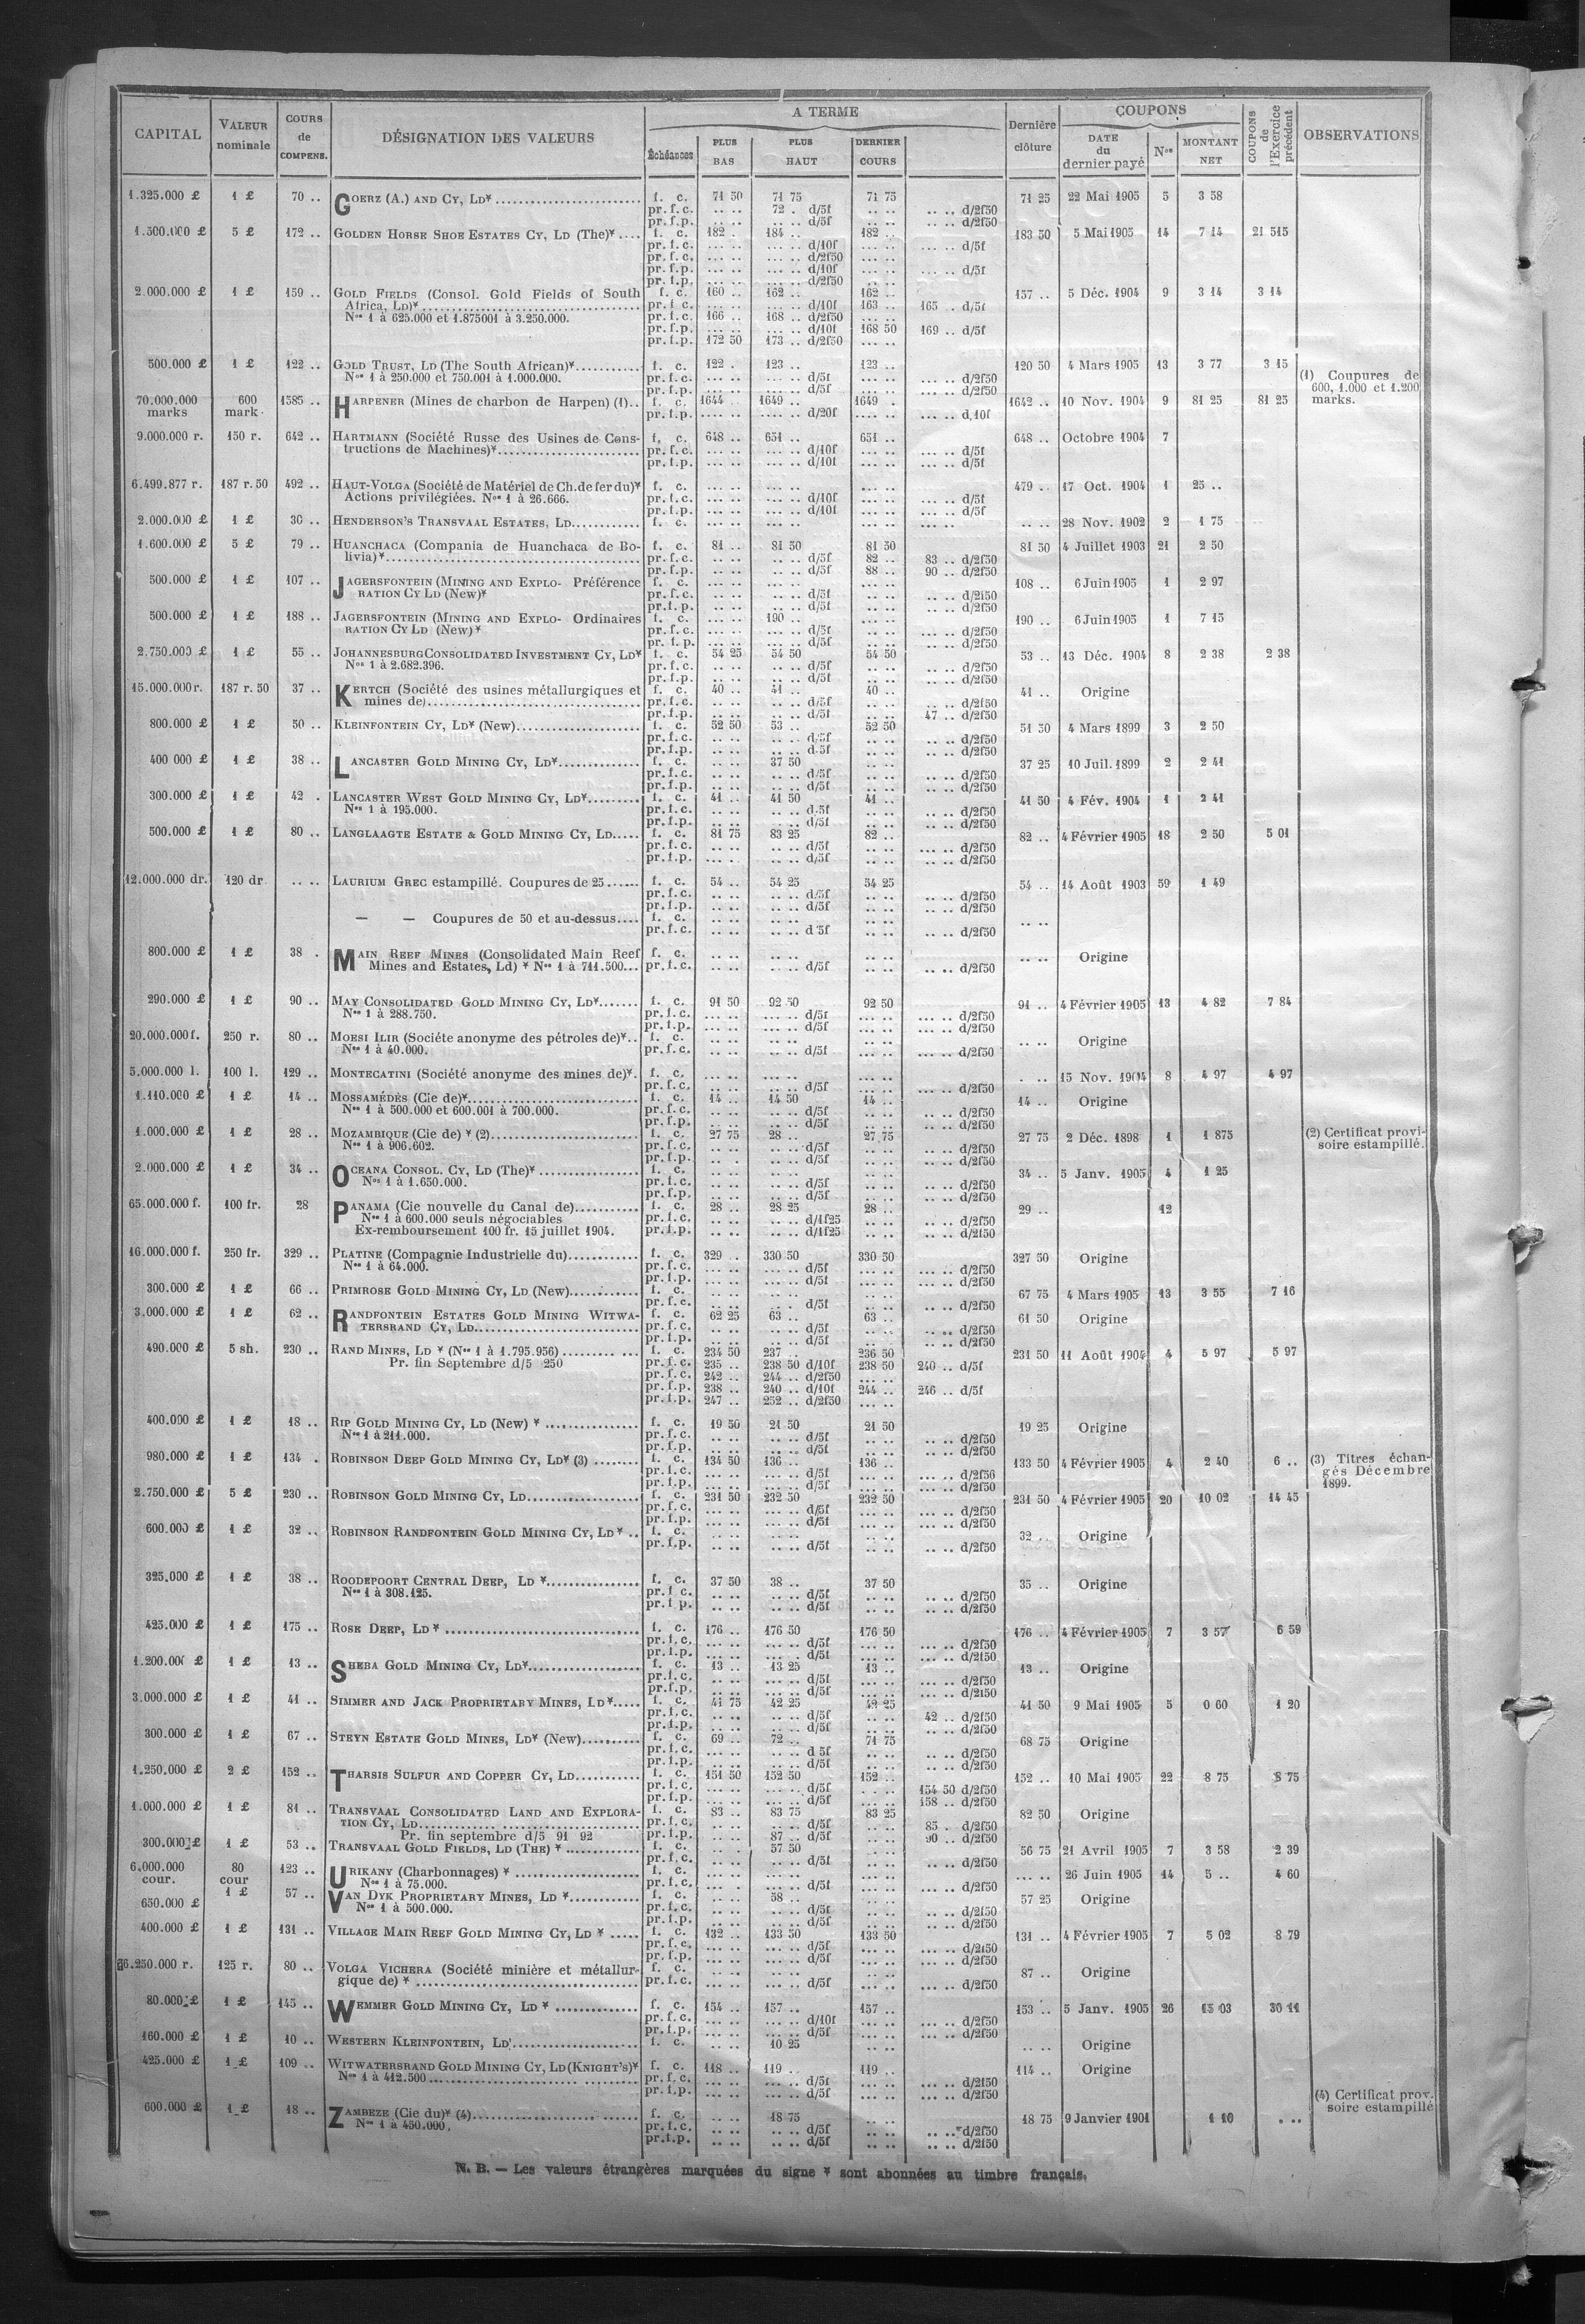 CAPITAL | VALEUR nominale | COURS de COMPENS. | DÉSIGNATION DES VALEURS | A TERME | Dernière clôture | COUPONS | COUPONS de l'Exercice précédent | OBSERVATIONS
Échéances | PLUS BAS | PLUS HAUT | DERNIER COURS | DATE du dernier payé | Nos | MONTANT NET
1.325.000 £ | 1 £ | 70 .. | GOERZ (A.) AND CY, LD* | f. c. | 71 50 | 71 75 | 71 75 | 71 25 | 22 Mai 1905 | 5 | 3 58
pr. f. c. | .. .. | 72 . d/5f | .. .. | .. .. d/2f50
pr. f. p. | .. .. | .. .. d/5f | .. .. | .. .. d/2f50
1.500.000 £ | 5 £ | 172 .. | GOLDEN HORSE SHOE ESTATES CY, LD (The)* | f. c. | 182 .. | 184 .. | 182 .. | 183 50 | 5 Mai 1905 | 14 | 7 14 | 21 515
pr. f. c. | ... .. | ... .. d/10f | ... .. | ... .. d/5f
pr. f. c. | ... .. | ... .. d/2f50
pr. f. p. | ... .. | ... .. d/10f | ... .. | ... .. d/5f
pr. f. p. | ... .. | ... .. d/2f50
2.000.000 £ | 1 £ | 159 .. | GOLD FIELDS (Consol. Gold Fields of South | f. c. | 160 .. | 162 .. | 162 .. | 157 .. | 5 Déc. 1904 | 9 | 3 14 | 3 14
Africa, LD)* | pr. f. c. | ... .. | ... .. d/10f | 163 .. | 165 .. d/5f
Nos 1 à 625.000 et 1.875001 à 3.250.000. | pr. f. c. | 166 .. | 168 .. d/2f50 | ... ..
pr. f. p. | ... .. | ... .. d/10f | 168 50 | 169 .. d/5f
pr. f. p. | 172 50 | 173 .. d/2f50 | ... ..
500.000 £ | 1 £ | 122 .. | GOLD TRUST, LD (The South African)* | f. c. | 122 . | 123 .. | 123 .. | 120 50 | 4 Mars 1905 | 13 | 3 77 | 3 15
Nos 1 à 250.000 et 750.001 à 1.000.000. | pr. f. c. | ... .. | ... .. d/5f | ... .. | ... .. d/2f50 | (1) Coupures de
pr. f. p. | ... .. | ... .. d/5f | ... .. | ... .. d/2f50 | 600, 1.000 et 1.200
70.000.000 marks | 600 mark. | 1585 .. | HARPENER (Mines de charbon de Harpen) (1).. | f. c. | 1644 .. | 1649 .. | 1649 . | 1642 .. | 10 Nov. 1904 | 9 | 81 25 | 81 25 | marks.
pr. f. p. | .... .. | .... .. d/20f | .... .. | ... .. d,10f
9.000.000 r. | 150 r. | 642 .. | HARTMANN (Société Russe des Usines de Cons- | f. c. | 648 .. | 651 .. | 651 .. | 648 .. | Octobre 1904 | 7
tructions de Machines)* | pr. f. c. | ... .. | ... .. d/10f | ... .. | ... .. d/5f
pr. f. p. | ... .. | ... .. d/10f | ... .. | ... .. d/5f
6.499.877 r. | 187 r. 50 | 492 .. | HAUT-VOLGA (Société de Matériel de Ch. de fer du)* | f. c. | ... .. | ... .. | ... .. | 479 .. | 17 Oct. 1904 | 1 | 25 ..
Actions privilégiées. Nos 1 à 26.666. | pr. f. c. | ... .. | ... .. d/10f | ... .. | ... .. d/5f
pr. f. p. | ... .. | ... .. d/10f | ... .. | ... .. d/5f
2.000.000 £ | 1 £ | 30 .. | HENDERSON'S TRANSVAAL ESTATES, LD | f. c. | ... .. | ... .. | ... .. | .. .. | 28 Nov. 1902 | 2 | 1 75
1.600.000 £ | 5 £ | 79 .. | HUANCHACA (Compania de Huanchaca de Bo- | f. c. | 81 .. | 81 50 | 81 50 | 81 50 | 4 Juillet 1903 | 21 | 2 50
livia)* | pr. f. c. | .. .. | .. .. d/5f | 82 .. | 83 .. d/2f50
pr. f. p. | .. .. | .. .. d/5f | 88 .. | 90 .. d/2f50
500.000 £ | 1 £ | 107 .. | JAGERSFONTEIN (MINING AND EXPLO- Préférence | f. c. | ... .. | ... .. | ... .. | 108 .. | 6 Juin 1905 | 1 | 2 97
RATION CY LD (New)* | pr. f. c. | ... .. | ... .. d/5f | ... .. | .. .. d/2f50
pr. f. p. | ... .. | ... .. d/5f | ... .. | .. .. d/2f50
500.000 £ | 1 £ | 188 .. | JAGERSFONTEIN (MINING AND EXPLO- Ordinaires | f. c. | ... .. | 190 .. | ... .. | 190 .. | 6 Juin 1905 | 1 | 7 15
RATION CY LD (New)* | pr. f. c. | ... .. | ... .. d/5f | ... .. | ... .. d/2f50
pr. f. p. | ... .. | ... .. d/5f | ... .. | ... .. d/2f50
2.750.000 £ | 1 £ | 55 .. | JOHANNESBURG CONSOLIDATED INVESTMENT CY, LD* | f. c. | 54 25 | 54 50 | 54 50 | 53 .. | 13 Déc. 1904 | 8 | 2 38 | 2 38
Nos 1 à 2.682.396. | pr. f. c. | .. .. | .. .. d/5f | .. .. | .. .. d/2f50
pr. f. p. | .. .. | .. .. d/5f | .. .. | .. .. d/2f50
15.000.000 r. | 187 r. 50 | 37 .. | KERTCH (Société des usines métallurgiques et | f. c. | 40 .. | 41 .. | 40 .. | 41 .. | Origine
mines de) | pr. f. c. | .. .. | .. .. d/5f | .. .. | .. .. d/2f50
pr. f. p. | .. .. | .. .. d/5f | .. .. | 47 .. d/2f50
800.000 £ | 1 £ | 50 .. | KLEINFONTEIN CY, LD* (New) | f. c. | 52 50 | 53 .. | 52 50 | 51 50 | 4 Mars 1899 | 3 | 2 50
pr. f. c. | .. .. | .. .. d/5f | .. .. | .. .. d/2f50
pr. f. p. | .. .. | .. .. d.5f | .. .. | .. .. d/2f50
400 000 £ | 1 £ | 38 .. | LANCASTER GOLD MINING CY, LD* | f. c. | .. .. | 37 50 | .. .. | 37 25 | 10 Juil. 1899 | 2 | 2 41
pr. f. c. | .. .. | .. .. d/5f | .. .. | .. .. d/2f50
pr. f. p. | .. .. | .. .. d/5f | .. .. | .. .. d/2f50
300.000 £ | 1 £ | 42 . | LANCASTER WEST GOLD MINING CY, LD* | f. c. | 41 .. | 41 50 | 41 .. | 41 50 | 4 Fév. 1904 | 1 | 2 41
Nos 1 à 195.000. | pr. f. c. | .. .. | .. .. d.5f | .. .. | .. .. d/2f50
pr. f. p. | .. .. | .. .. d/5f | .. .. | .. .. d/2f50
500.000 £ | 1 £ | 80 .. | LANGLAAGTE ESTATE & GOLD MINING CY, LD | f. c. | 81 75 | 83 25 | 82 .. | 82 .. | 4 Février 1905 | 18 | 2 50 | 5 01
pr. f. c. | ... .. | ... .. d/5f | ... .. | ... .. d/2f50
pr. f. p. | ... .. | ... .. d/5f | ... .. | ... .. d/2f50
12.000.000 dr. | 120 dr. | .. .. | LAURIUM GREC estampillé. Coupures de 25 | f. c. | 54 .. | 54 25 | 54 25 | 54 .. | 14 Août 1903 | 59 | 1 49
pr. f. c. | .. .. | .. .. d/5f | .. .. | .. .. d/2f50
pr. f. p. | .. .. | .. .. d/5f | .. .. | .. .. d/2f50
— — Coupures de 50 et au-dessus.... | f. c. | .. .. | .. .. | .. .. | .. ..
pr. f. c. | .. .. | .. .. d 5f | .. .. | .. .. d/2f50
800.000 £ | 1 £ | 38 . | MAIN REEF MINES (Consolidated Main Reef | f. c. | .. .. | .. .. | .. .. | .. .. | Origine
Mines and Estates, Ld) * Nos 1 à 711.500... | pr. f. c. | .. .. | .. .. d/5f | .. .. | .. .. d/2f50
290.000 £ | 1 £ | 90 .. | MAY CONSOLIDATED GOLD MINING CY, LD* | f. c. | 91 50 | 92 50 | 92 50 | 91 .. | 4 Février 1905 | 13 | 4 82 | 7 84
Nos 1 à 288.750. | pr. f. c. | ... .. | ... .. d/5f | ... .. | ... .. d/2f50
pr. f. p. | ... .. | ... .. d/5f | ... .. | ... .. d/2f50
20.000.000 f. | 250 r. | 80 .. | MOESI ILIR (Sociéte anonyme des pétroles de)*.. | f. c. | .. .. | .. .. | .. .. | .. .. | Origine
Nos 1 à 40.000. | pr. f. c. | .. .. | .. .. d/5f | .. .. | ... .. d/2f50
5.000.000 l. | 100 l. | 129 .. | MONTECATINI (Société anonyme des mines de)*. | f. c. | ... .. | ... .. | ... .. | . .. | 15 Nov. 1904 | 8 | 4 97 | 4 97
pr. f. c. | ... .. | ... .. d/5f | ... .. | ... .. d/2f50
1.110.000 £ | 1 £ | 14 .. | MOSSAMÉDÈS (Cie de)* | f. c. | 14 .. | 14 50 | 14 .. | 14 .. | Origine
Nos 1 à 500.000 et 600.001 à 700.000. | pr. f. c. | .. .. | .. .. d/5f | .. .. | .. .. d/2f50
pr. f. p. | .. .. | .. .. d/5f | .. .. | .. .. d/2f50
1.000.000 £ | 1 £ | 28 .. | MOZAMBIQUE (Cie de) * (2) | f. c. | 27 75 | 28 .. | 27 75 | 27 75 | 2 Déc. 1898 | 1 | 1 875 | (2) Certificat provi-
Nos 1 à 906.602. | pr. f. c. | .. .. | .. .. d/5f | .. .. | .. .. d/2f50 | soire estampillé.
pr. f. p. | .. . | .. .. d/5f | .. .. | .. .. d/2f50
2.000.000 £ | 1 £ | 34 .. | OCEANA CONSOL. CY, LD (The)* | f. c. | .. .. | .. .. | .. .. | 34 .. | 5 Janv. 1905 | 4 | 1 25
Nos 1 à 1.650.000. | pr. f. c. | .. .. | .. .. d/5f | .. .. | .. .. d/2f50
pr. f. p. | .. .. | .. .. d/5f | .. .. | .. .. d/2f50
65.000.000 f. | 100 fr. | 28 | PANAMA (Cie nouvelle du Canal de) | f. c. | 28 .. | 28 25 | 28 .. | 29 .. | 12
Nos 1 à 600.000 seuls négociables | pr. f. c. | .. .. | .. .. d/1f25 | .. .. | .. .. d/2f50
Ex-remboursement 100 fr. 15 juillet 1904. | pr. f. p. | .. .. | .. .. d/1f25 | .. .. | .. .. d/2f50
16.000.000 f. | 250 fr. | 329 .. | PLATINE (Compagnie Industrielle du) | f. c. | 329 .. | 330 50 | 330 50 | 327 50 | Origine
Nos 1 à 64.000. | pr. f. c. | ... .. | ... .. d/5f | ... .. | ... .. d/2f50
pr. f. p. | ... .. | ... .. d/5f | ... .. | ... .. d/2f50
300.000 £ | 1 £ | 66 .. | PRIMROSE GOLD MINING CY, LD (New) | f. c. | .. .. | .. .. | .. .. | 67 75 | 4 Mars 1905 | 13 | 3 55 | 7 16
pr. f. c. | .. .. | .. .. d/5f | .. .. | .. .. d/2f50
3.000.000 £ | 1 £ | 62 .. | RANDFONTEIN ESTATES GOLD MINING WITWA- | f. c. | 62 25 | 63 .. | 63 .. | 61 50 | Origine
TERSRAND CY, LD | pr. f. c. | .. .. | .. .. d/5f | .. .. | .. .. d/2f50
pr. f. p. | .. .. | .. .. d/5f | .. .. | .. .. d/2f50
490.000 £ | 5 sh. | 230 .. | RAND MINES, LD * (Nos 1 à 1.795.956) | f. c. | 234 50 | 237 .. | 236 50 | 231 50 | 11 Août 1904 | 4 | 5 97 | 5 97
Pr. fin Septembre d/5 250 | pr. f. c. | 235 .. | 238 50 d/10f | 238 50 | 240 .. d/5f
pr. f. c. | 242 .. | 244 .. d/2f50 | ... ..
pr. f. p. | 238 .. | 240 .. d/10f | 244 .. | 246 .. d/5f
pr. f. p. | 247 .. | 252 .. d/2f50 | ... ..
400.000 £ | 1 £ | 18 .. | RIP GOLD MINING CY, LD (New) * | f. c. | 19 50 | 21 50 | 21 50 | 19 25 | Origine
Nos 1 à 211.000. | pr. f. c. | .. .. | .. .. d/5f | .. .. | .. .. d/2f50
pr. f. p. | .. .. | .. .. d/5f | .. .. | .. .. d/2f50
980.000 £ | 1 £ | 134 . | ROBINSON DEEP GOLD MINING CY, LD* (3) | f. c. | 134 50 | 136 .. | 136 .. | 133 50 | 4 Février 1905 | 4 | 2 40 | 6 .. | (3) Titres échan-
pr. f. c. | ... .. | ... .. d/5f | ... .. | ... .. d/2f50 | gés Décembre
pr. f. p. | ... .. | ... .. d/5f | ... .. | ... .. d/2f50 | 1899.
2.750.000 £ | 5 £ | 230 .. | ROBINSON GOLD MINING CY, LD | f. c. | 231 50 | 232 50 | 232 50 | 231 50 | 4 Février 1905 | 20 | 10 02 | 14 45
pr. f. c. | ... .. | ... .. d/5f | ... .. | ... .. d/2f50
pr. f. p. | ... .. | ... .. d/5f | ... .. | ... .. d/2f50
600.000 £ | 1 £ | 32 .. | ROBINSON RANDFONTEIN GOLD MINING CY, LD * .. | f. c. | .. .. | .. .. | .. .. | 32 .. | Origine
pr. f. p. | .. .. | .. .. d/5f | .. .. | .. .. d/2f50
325.000 £ | 1 £ | 38 .. | ROODEPOORT CENTRAL DEEP, LD * | f. c. | 37 50 | 38 .. | 37 50 | 35 .. | Origine
Nos 1 à 308.125. | pr. f. c. | .. .. | .. .. d/5f | .. .. | .. .. d/2f50
pr. f. p. | .. .. | .. .. d/5f | .. .. | .. .. d/2f50
425.000 £ | 1 £ | 175 .. | ROSE DEEP, LD * | f. c. | 176 .. | 176 50 | 176 50 | 176 .. | 4 Février 1905 | 7 | 3 57 | 6 59
pr. f. c. | ... .. | ... .. d/5f | ... .. | ... .. d/2f50
pr. f. p. | ... .. | ... .. d/5f | ... .. | ... .. d/2f50
1.200.000 £ | 1 £ | 13 .. | SHEBA GOLD MINING CY, LD* | f. c. | 13 .. | 13 25 | 13 .. | 13 .. | Origine
pr. f. c. | ... .. | ... .. d/5f | ... .. | ... .. d/2f50
pr. f. p. | ... .. | ... .. d/5f | ... .. | ... .. d/2f50
3.000.000 £ | 1 £ | 41 .. | SIMMER AND JACK PROPRIETARY MINES, LD* | f. c. | 41 75 | 42 25 | 42 25 | 41 50 | 9 Mai 1905 | 5 | 0 60 | 1 20
pr. f. c. | .. .. | .. .. d/5f | .. .. | 42 .. d/2f50
pr. f. p. | .. .. | .. .. d/5f | .. .. | .. .. d/2f50
300.000 £ | 1 £ | 67 .. | STEYN ESTATE GOLD MINES, LD* (New) | f. c. | 69 .. | 72 .. | 71 75 | 68 75 | Origine
pr. f. c. | ... .. | ... .. d 5f | ... .. | .. .. d/2f50
pr. f. p. | ... .. | ... .. d/5f | ... .. | .. .. d/2f50
1.250.000 £ | 2 £ | 152 .. | THARSIS SULFUR AND COPPER CY, LD | f. c. | 151 50 | 152 50 | 152 .. | 152 .. | 10 Mai 1905 | 22 | 8 75 | 8 75
pr. f. c. | ... .. | ... .. d/5f | ... .. | 154 50 d/2f50
pr. f. p. | ... .. | ... .. d/5f | ... .. | 158 .. d/2f50
1.000.000 £ | 1 £ | 81 .. | TRANSVAAL CONSOLIDATED LAND AND EXPLORA- | f. c. | 83 .. | 83 75 | 83 25 | 82 50 | Origine
TION CY, LD | pr. f. c. | .. .. | .. .. d/5f | .. .. | 85 . d/2f50
Pr. fin septembre d/5 91 92 | pr. f. p. | .. .. | 87 .. d/5f | .. .. | 90 .. d/2f50
300.000 £ | 1 £ | 53 .. | TRANSVAAL GOLD FIELDS, LD (THE) * | f. c. | .. . | 57 50 | .. .. | 56 75 | 21 Avril 1905 | 7 | 3 58 | 2 39
pr. f. c. | .. .. | .. .. d/5f | .. .. | .. .. d/2f50
6.000.000 cour. | 80 cour | 123 .. | URIKANY (Charbonnages) * | f. c. | ... .. | ... .. | ... .. | ... .. | 26 Juin 1905 | 14 | 5 .. | 4 60
Nos 1 à 75.000. | pr. f. c. | ... .. | ... .. d/5f | ... .. | ... .. d/2f50
650.000 £ | 1 £ | 57 .. | VAN DYK PROPRIETARY MINES, LD * | f. c. | .. .. | 58 .. | .. .. | 57 25 | Origine
Nos 1 à 500.000. | pr. f. c. | .. .. | .. .. d/5f | .. .. | .. .. d/2f50
pr. f. p. | .. .. | .. .. d/5f | .. .. | .. .. d/2f50
400.000 £ | 1 £ | 131 .. | VILLAGE MAIN REEF GOLD MINING CY, LD * | f. c. | 132 .. | 133 50 | 133 50 | 131 .. | 4 Février 1905 | 7 | 5 02 | 8 79
pr. f. c. | ... .. | ... .. d/5f | ... .. | ... .. d/2f50
pr. f. p. | ... .. | ... .. d/5f | ... .. | ... .. d/2f50
6.250.000 r. | 125 r. | 80 .. | VOLGA VICHERA (Société minière et métallur- | f. c. | ... .. | ... .. | ... .. | 87 .. | Origine
gique de) * | pr. f. c. | ... .. | ... .. d/5f | ... .. | ... .. d/2f50
80.000 £ | 1 £ | 145 .. | WEMMER GOLD MINING CY, LD * | f. c. | 154 .. | 157 .. | 157 .. | 153 .. | 5 Janv. 1905 | 26 | 15 03 | 30 11
pr. f. c. | ... .. | ... .. d/10f | ... .. | ... .. d/2f50
pr. f. p. | ... .. | ... .. d/5f | ... .. | ... .. d/2f50
160.000 £ | 1 £ | 10 .. | WESTERN KLEINFONTEIN, LD | f. c. | .. .. | 10 25 | .. .. | .. .. | Origine
425.000 £ | 1 £ | 109 .. | WITWATERSRAND GOLD MINING CY, LD (KNIGHT'S)* | f. c. | 118 .. | 119 .. | 119 .. | 114 .. | Origine
Nos 1 à 412.500 | pr. f. c. | ... .. | ... .. d/5f | ... .. | ... .. d/2f50
pr. f. p. | ... .. | ... .. d/5f | ... .. | ... .. d/2f50 | (4) Certificat prov.
600.000 £ | 1 £ | 18 .. | ZAMBEZE (Cie du)* (4) | f. c. | .. .. | 18 75 | .. .. | 18 75 | 9 Janvier 1901 | 1 10 | . .. | soire estampillé
Nos 1 à 450.000. | pr. f. c. | .. .. | .. .. d/5f | .. .. | .. .. d/2f50
pr. f. p. | .. .. | .. .. d/5f | .. .. | .. .. d/2f50
N. B. — Les valeurs étrangères marquées du signe * sont abonnées au timbre français.